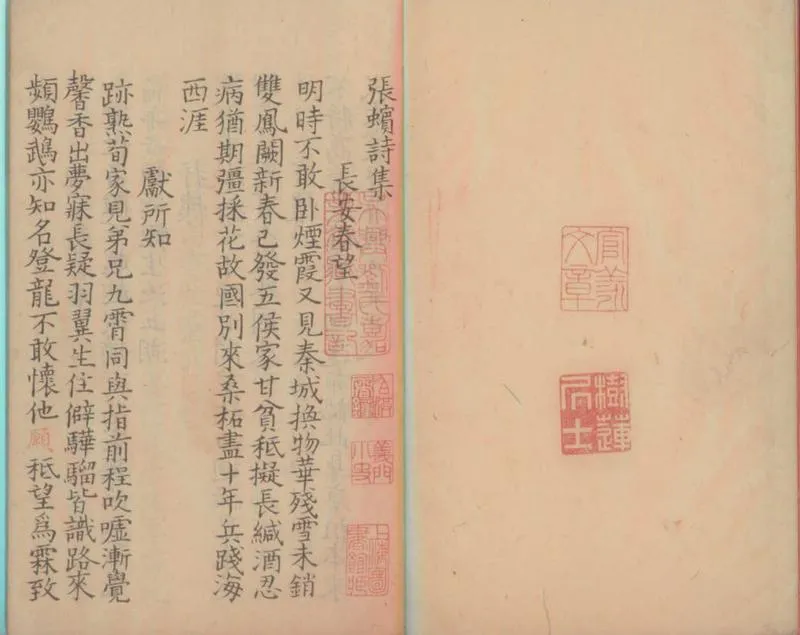 樹蓮
居士
張蠙詩集
長安春望
上海圖
書館藏
明時不敢卧煙霞又見秦城換物華殘雪未銷
雙鳳闕新春已發五侯家甘貧秪擬長緘酒忍
病猶期彊採花故國別來桑柘盡十年兵踐海
西涯
獻所知
跡熟荀家見弟兄九霄同與指前程吹噓漸覺
馨香出夢寐長疑羽翼生住僻驊騮皆識路來
頻鸚鵡亦知名登龍不敢懷他願秪望爲霖致